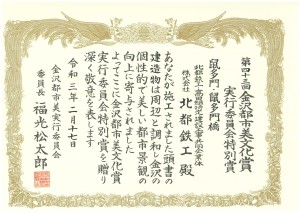 第四十三回 金沢都市美文化賞
実行委員会特別賞
鼠多門、鼠多門橋
株式会社 北都鉄工 殿
あなたが施工されました頭書の
建造物は周辺と調和し金沢の
個性的で美しい都市景観の
向上に寄与されました
よってここに金沢都市美文化賞
実行委員会特別賞を贈り
深く敬意を表します
令和三年一月十七日
金沢都市美実行委員会
委員長 福光松太郎